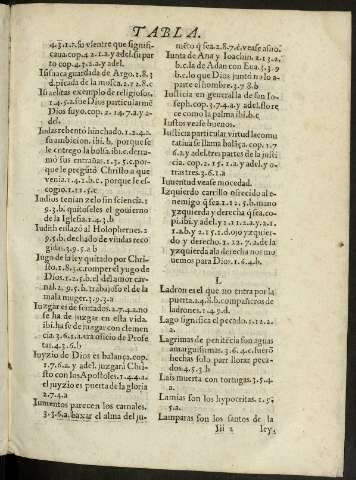 TABLA.
4.3.1.a. su vientre que signifi-
caua. cop. 4 2.1.a. y adel. su par
to cop. 4.3.2.a y adel.
Isis vaca guardada de Argo. 1.8.3
d. picada de la mosca. 2.1 2.8.c
Israelitas exemplo de religiosos.
1.4.5.2. fue Dios particular mē
Dios suyo. cop. 2. 1 4.7.a. y a-
del.
Iudas rebentò hinchado. 1.2.4.a.
su ambicion. ibi. b. porque se
le entrego la bolsa. ibi.c. derra-
mò sus entrañas. 1.3.5.c. por-
que le preguntò Christo a que
venia. 1.4.1.b.c. porque le es-
cogio. 1.1 1 5.c.
Iudios tenian zelo sin sciencia. 1
9.3.b. quitoseles el gouierno
de la Iglesia. 1.4.3.b
Iudith enlazò al Holophernes. 2
9 5.b. dechado de viudas reco-
gidas. 3.9 5.2 b
Iugo de la ley quitado por Chri-
sto. 1.8 3.c. romper el yugo de
Dios. 1.2 5.b. el del amor car-
nal. 2.9 5.b. trabajoso el de la
mala muger. 3.9.3.a
Iuzgar es de sentados. 2.7 4.2. no
se ha de juzgar en esta vida.
ibi. ha se de juzgar con clemen
cia. 3.6.1.a. era oficio de Profe
tas. 4.3.6.b
Iuyzio de Dios es balança. cop.
1.7 6.2. y adel. juzgarà Chri-
sto con los Apostoles. 1.4 4.a.
el juyzio es puerta de la gloria
2.7 4.a
Iumentos parecen los carnales.
3.3.6.a. baxar el alma del ju-
mēto q̃ sea. 2.8 7.d. vease asno.
Iunta de Ana y Ioachin. 2.1 3.2.
b.c. la de Adan con Eua. 3.3 9
b.c. lo que Dios juntò no lo a-
parte el hombre. 3.7 8.b
Iusticia en general la de san Io-
seph. cop. 3.7 4.a y adel. flore
ce como la palma ibi. b.c
Iustos vease buenos.
Iusticia particular virtud le comu
tatiua se llama bolsa. cop. 1.7
6.a. y adel. tres partes de la justi
cia. cop. 2.1 5.1.a. y adel. y o-
tras tres. 3.6 1.a
Iuuentud vease mocedad.
Izquierdo carrillo ofrecido al e-
nemigo q̃ sea. 2.1 2 5.b. mano
yzquierda y derecha q̃ sea. co-
pi. ibi. y adel. y 1 1 2.1.a.y 2.1
1.a b. y 2 1 5.1.d. ojo yzquier-
do y derecho. 2.1 2 7.2. de la
yzquierda a la derecha nos mo
uemos para Dios. 1.6 4.b.
L
Ladron es el que no entra por la
puerta. 1.4.8.b. compañeros de
ladrones. 1.4 9.d.
Lago significa el pecado. 1.1 2 2.
a.
Lagrimas de penitēcia son aguas
amarguissimas. 3.6 4.c. huerō
hechas solo para llorar peca-
dos. 4.5 3.b
Lais muerta con tortugas. 3.5 4.
a.
Lamias son los hypocritas. 1.5 2.
5.a.
Lamparas son los santos de la
Iii 2 ley.